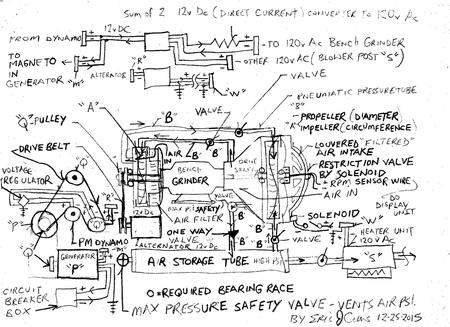 SUM OF 2 12v DC (DIRECT CURRENT) CONVERTER TO 120v AC
12vDC
FROM DYNAMO
TO MAGNETO
IN
GENERATOR "M"
ALTERNOR
"R"
"W"
TO 120v AC BENCH GRINDER
OTHER 120V AC (BLOWER POST "S")
VALVE
PNEUMATIC PRESSURE TUBE
"B"
"A"
VALVE
"B"
"Q" PULLEY
DRIVE BELT
VOLTAGE
REGULATOR
"Q"
"P"
"R"
PM DYNAMO
GENERATOR
"P"
"M"
CIRCUIT
BREAKER
BOX
AIR
IN
"B"
"B"
BENCH
GRINDER
DRIVE
12v DC
MAX PSI SAFETY
VALVE
AIR
FILTER
ONE WAY
VALVE
ALTERNATOR 12v DC
"B"
"B"
"B"
"A" PROPELLER (DIAMETER)
IMPELLER (CIRCUMFERENCE)
LOUVERED "FILTERED"
AIR INTAKE
RESTRICTION VALVE
BY SOLENOID
+ RPM SENSOR WIRE
AIR IN
TO
DISPLAY
UNIT
SOLENOID
"W"
HEATER UNIT
120V AC
"S"
VALVE
AIR STORAGE TUBE
HIGH PSI
O=REQUIRED BEARING RACE
MAX PRESSURE SAFETY VALVE - VENTS AIR PSI.
BY ERIC
12-25-2015